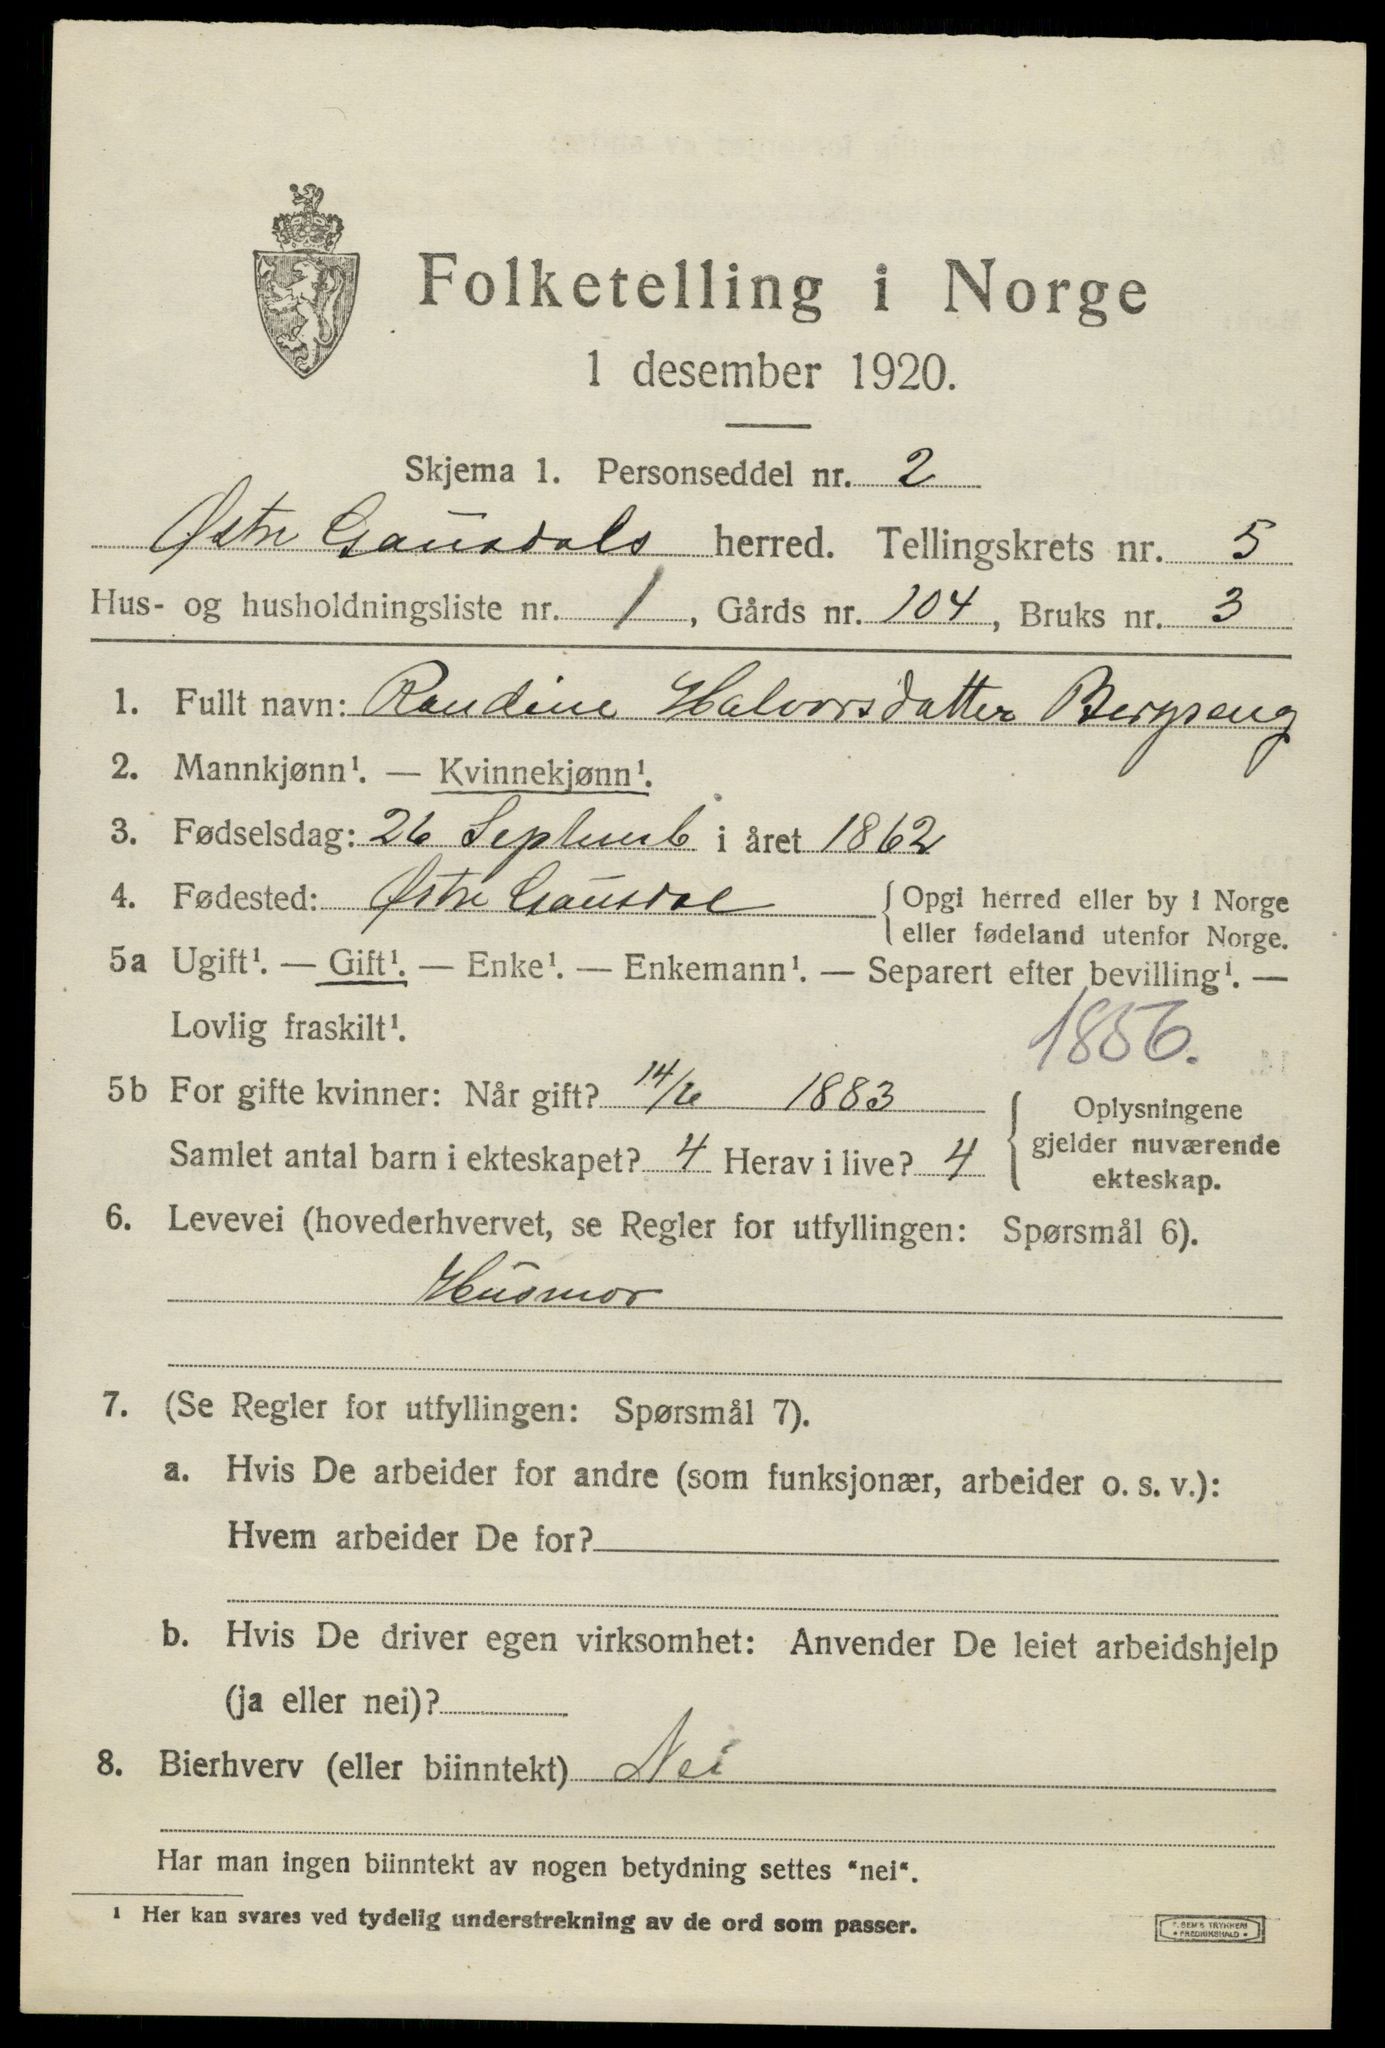 Folketelling i Norge
1 desember 1920.
Skjema 1. Personseddel nr. 2
Østre Gausdals herred. Tellingskrets nr. 5
Hus- og husholdningsliste nr. 1, Gårds nr. 104, Bruks nr. 3
1. Fullt navn: Randine Halvorsdatter Bergseng
2. Mannkjønn¹. — Kvinnekjønn¹.
3. Fødselsdag: 26 Septemb i året 1862
4. Fødested: Østre Gausdal { Opgi herred eller by i Norge
eller fødeland utenfor Norge.
5a Ugift¹. — Gift¹. — Enke¹. — Enkemann¹. — Separert efter bevilling¹. —
Lovlig fraskilt¹.
1856.
5b For gifte kvinner: Når gift? 14/6 1883
Samlet antal barn i ekteskapet? 4 Herav i live? 4
{ Oplysningene
gjelder nuværende
ekteskap.
6. Levevei (hovederhvervet, se Regler for utfyllingen: Spørsmål 6).
Husmor
7. (Se Regler for utfyllingen: Spørsmål 7).
a. Hvis De arbeider for andre (som funksjonær, arbeider o. s. v.):
Hvem arbeider De for?
b. Hvis De driver egen virksomhet: Anvender De leiet arbeidshjelp
(ja eller nei)?
8. Bierhverv (eller biinntekt) Nei
Har man ingen biinntekt av nogen betydning settes "nei".
¹ Her kan svares ved tydelig understrekning av de ord som passer.